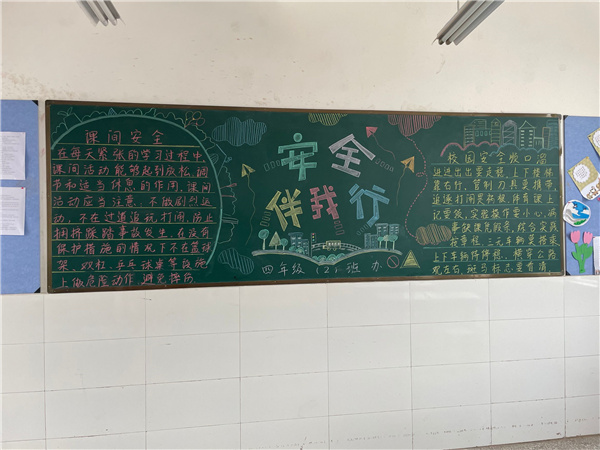 课间安全
在每天紧张的学习过程中
课间活动能够起到放松、调
节和适当休息的作用。课间
活动应当注意，不做剧烈运
动，不在过道追玩打闹，防止
拥挤踩踏事故发生，在没有
保护措施的情况下不在篮球
架、双杠、乒乓球桌等设施
上做危险动作，避免摔伤
安全
伴我行
四年级（2）班 办
校园安全顺口溜
进进出出要走稳，上下楼梯
靠右行，管制刀具莫携带，
追逐打闹是祸根，体育课上
记要领，实验操作要小心，病
事缺课见假条，综合实践
按章程，三元车辆莫搭乘
上下车辆待停稳，横穿公路
观左右，斑马标志要看清